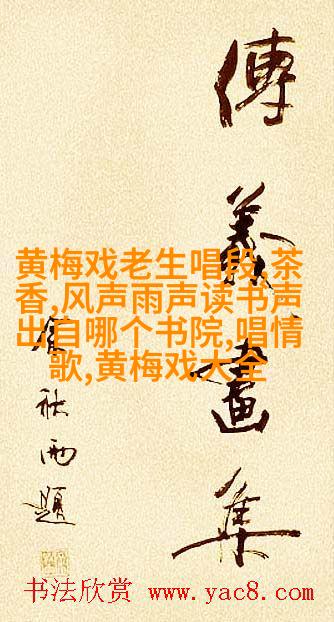 畫集
秋雨題
黄梅戏老生唱段,茶
香,风声雨声读书声
出自哪个书院,唱情
歌,黄梅戏大全
书法欣赏 www.yac8.com